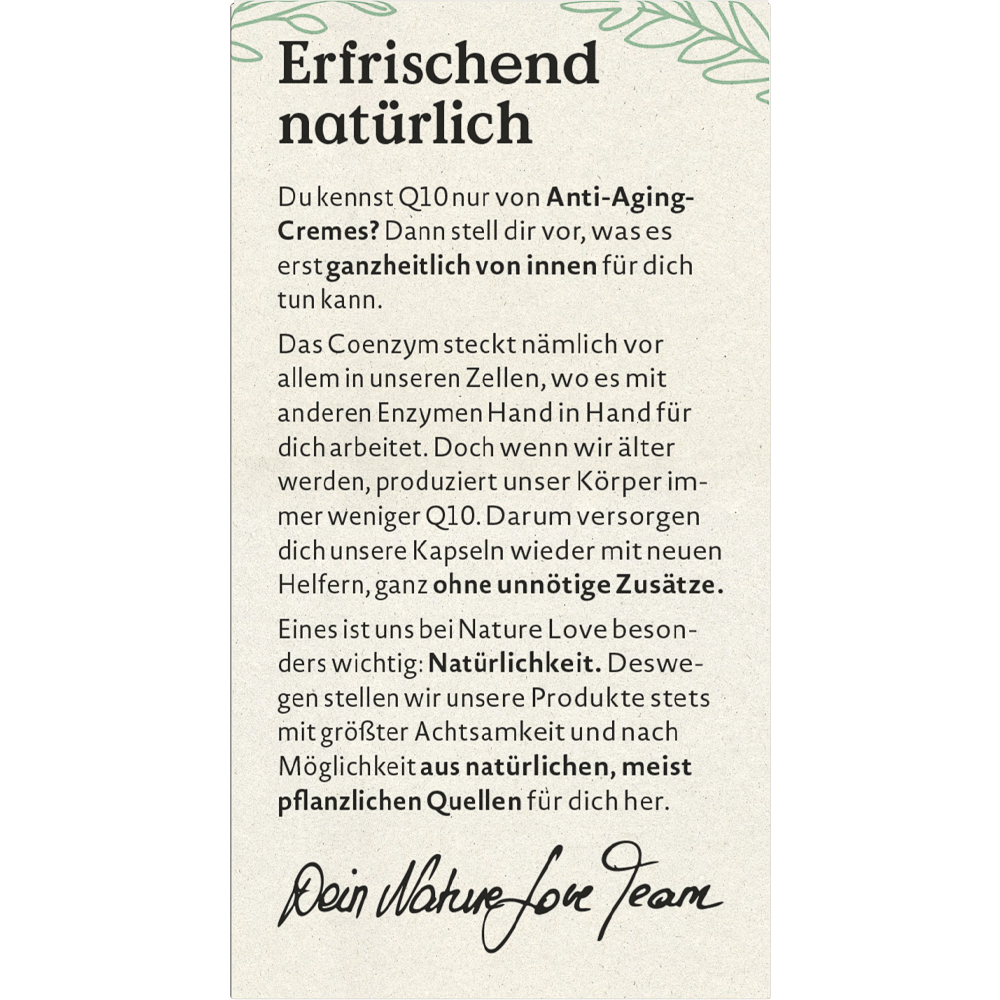 Erfrischend
natürlich
Du kennst Q10 nur von Anti-Aging-
Cremes? Dann stell dir vor, was es
erst ganzheitlich von innen für dich
tun kann.
Das Coenzym steckt nämlich vor
allem in unseren Zellen, wo es mit
anderen Enzymen Hand in Hand für
dich arbeitet. Doch wenn wir älter
werden, produziert unser Körper im-
mer weniger Q10. Darum versorgen
dich unsere Kapseln wieder mit neuen
Helfern, ganz ohne unnötige Zusätze.
Eines ist uns bei Nature Love beson-
ders wichtig: Natürlichkeit. Deswe-
gen stellen wir unsere Produkte stets
mit größter Achtsamkeit und nach
Möglichkeit aus natürlichen, meist
pflanzlichen Quellen für dich her.
Dein Nature Love Team